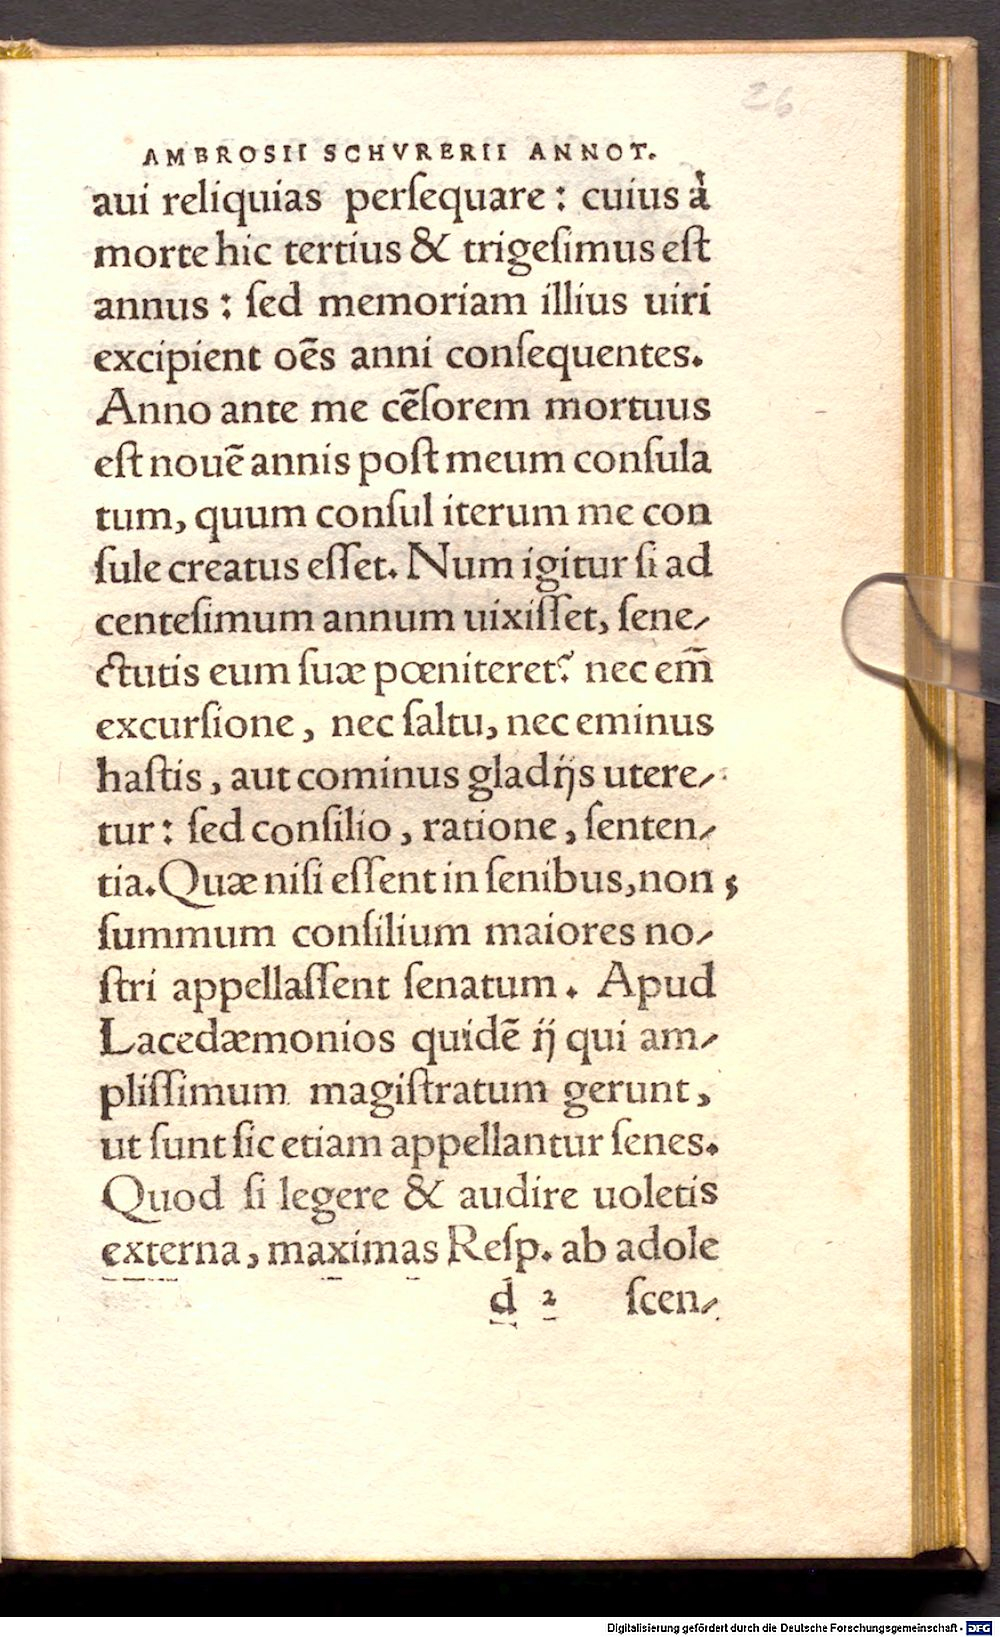 26
AMBROSII SCHVRERII ANNOT.
aui reliquias perſequare: cuius à
morte hic tertius & trigeſimus eſt
annus: ſed memoriam illius uiri
excipient oẽs anni conſequentes.
Anno ante me cẽſorem mortuus
eſt nouẽ annis poſt meum conſula
tum, quum conſul iterum me con
ſule creatus eſſet. Num igitur ſi ad
centeſimum annum uixiſſet, ſene⸗
ctutis eum ſuæ pœniteret? nec em̃
excurſione, nec ſaltu, nec eminus
haſtis, aut cominus gladijs utere⸗
tur: ſed conſilio, ratione, ſenten⸗
tia. Quæ niſi eſſent in ſenibus, non;
ſummum conſilium maiores no⸗
ſtri appellaſſent ſenatum. Apud
Lacedæmonios quidẽ ij qui am⸗
pliſſimum magiſtratum gerunt,
ut ſunt ſic etiam appellantur ſenes.
Quod ſi legere & audire uoletis
externa, maximas Reſp. ab adole
d 2 ſcen⸗
Digitalisierung gefördert durch die Deutsche Forschungsgemeinschaft - DFG